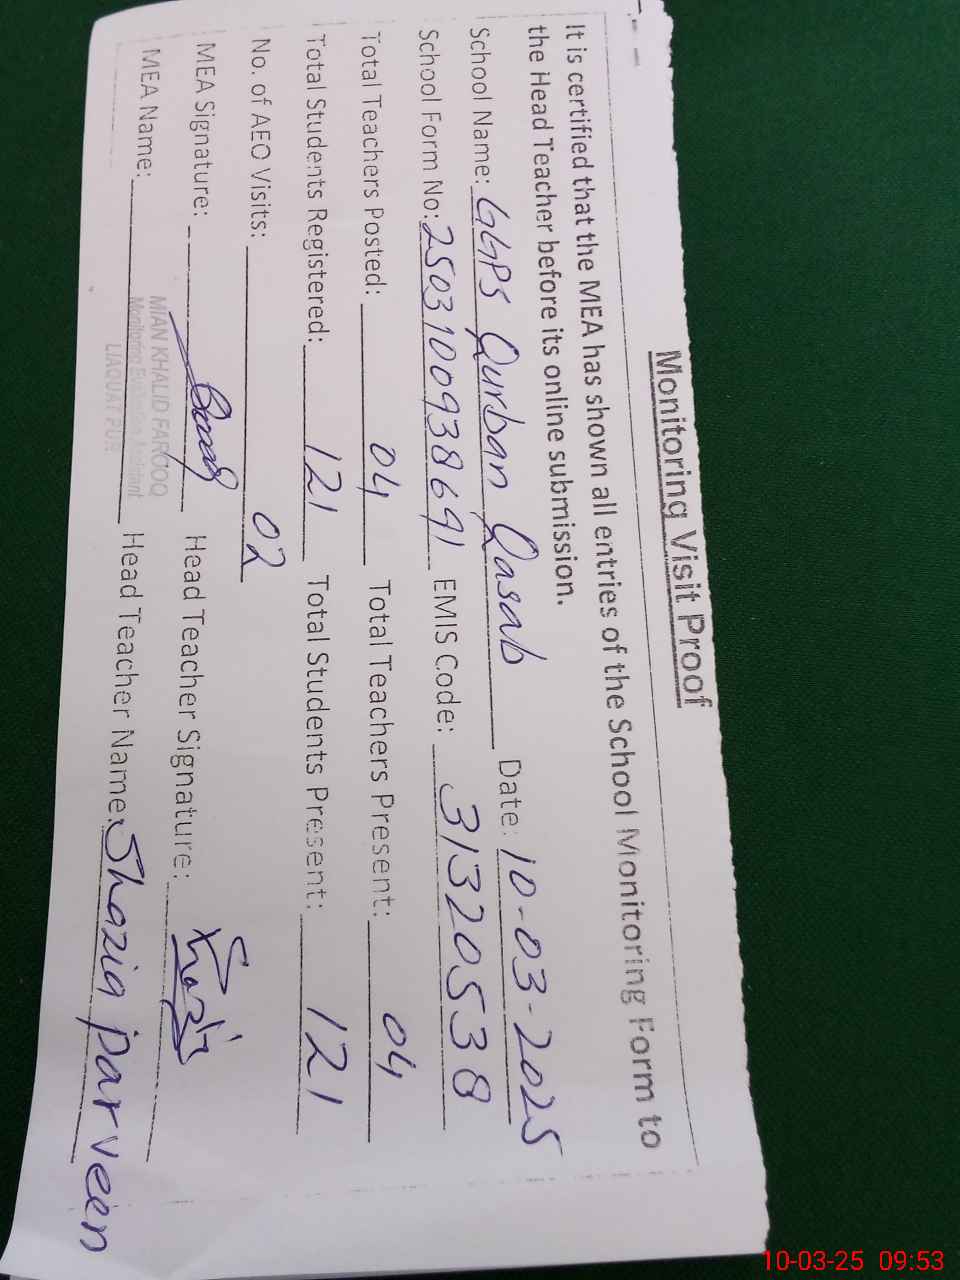 Monitoring Visit Proof
It is certified that the MEA has shown all entries of the School Monitoring Form to
the Head Teacher before its online submission.
School Name: GGPS Qurban Qasab Date: 10-03-2025
School Form No: 2503100938691 EMIS Code: 31320538
Total Teachers Posted: 04 Total Teachers Present: 04
Total Students Registered: 121 Total Students Present: 121
No. of AEO Visits: 02
MEA Signature: Head Teacher Signature:
MEA Name: Head Teacher Name: Shazia parveen
MIAN KHALID FAROOQ
Monitoring Evaluation Assistant
LIAQUAT PUR
10-03-25 09:53